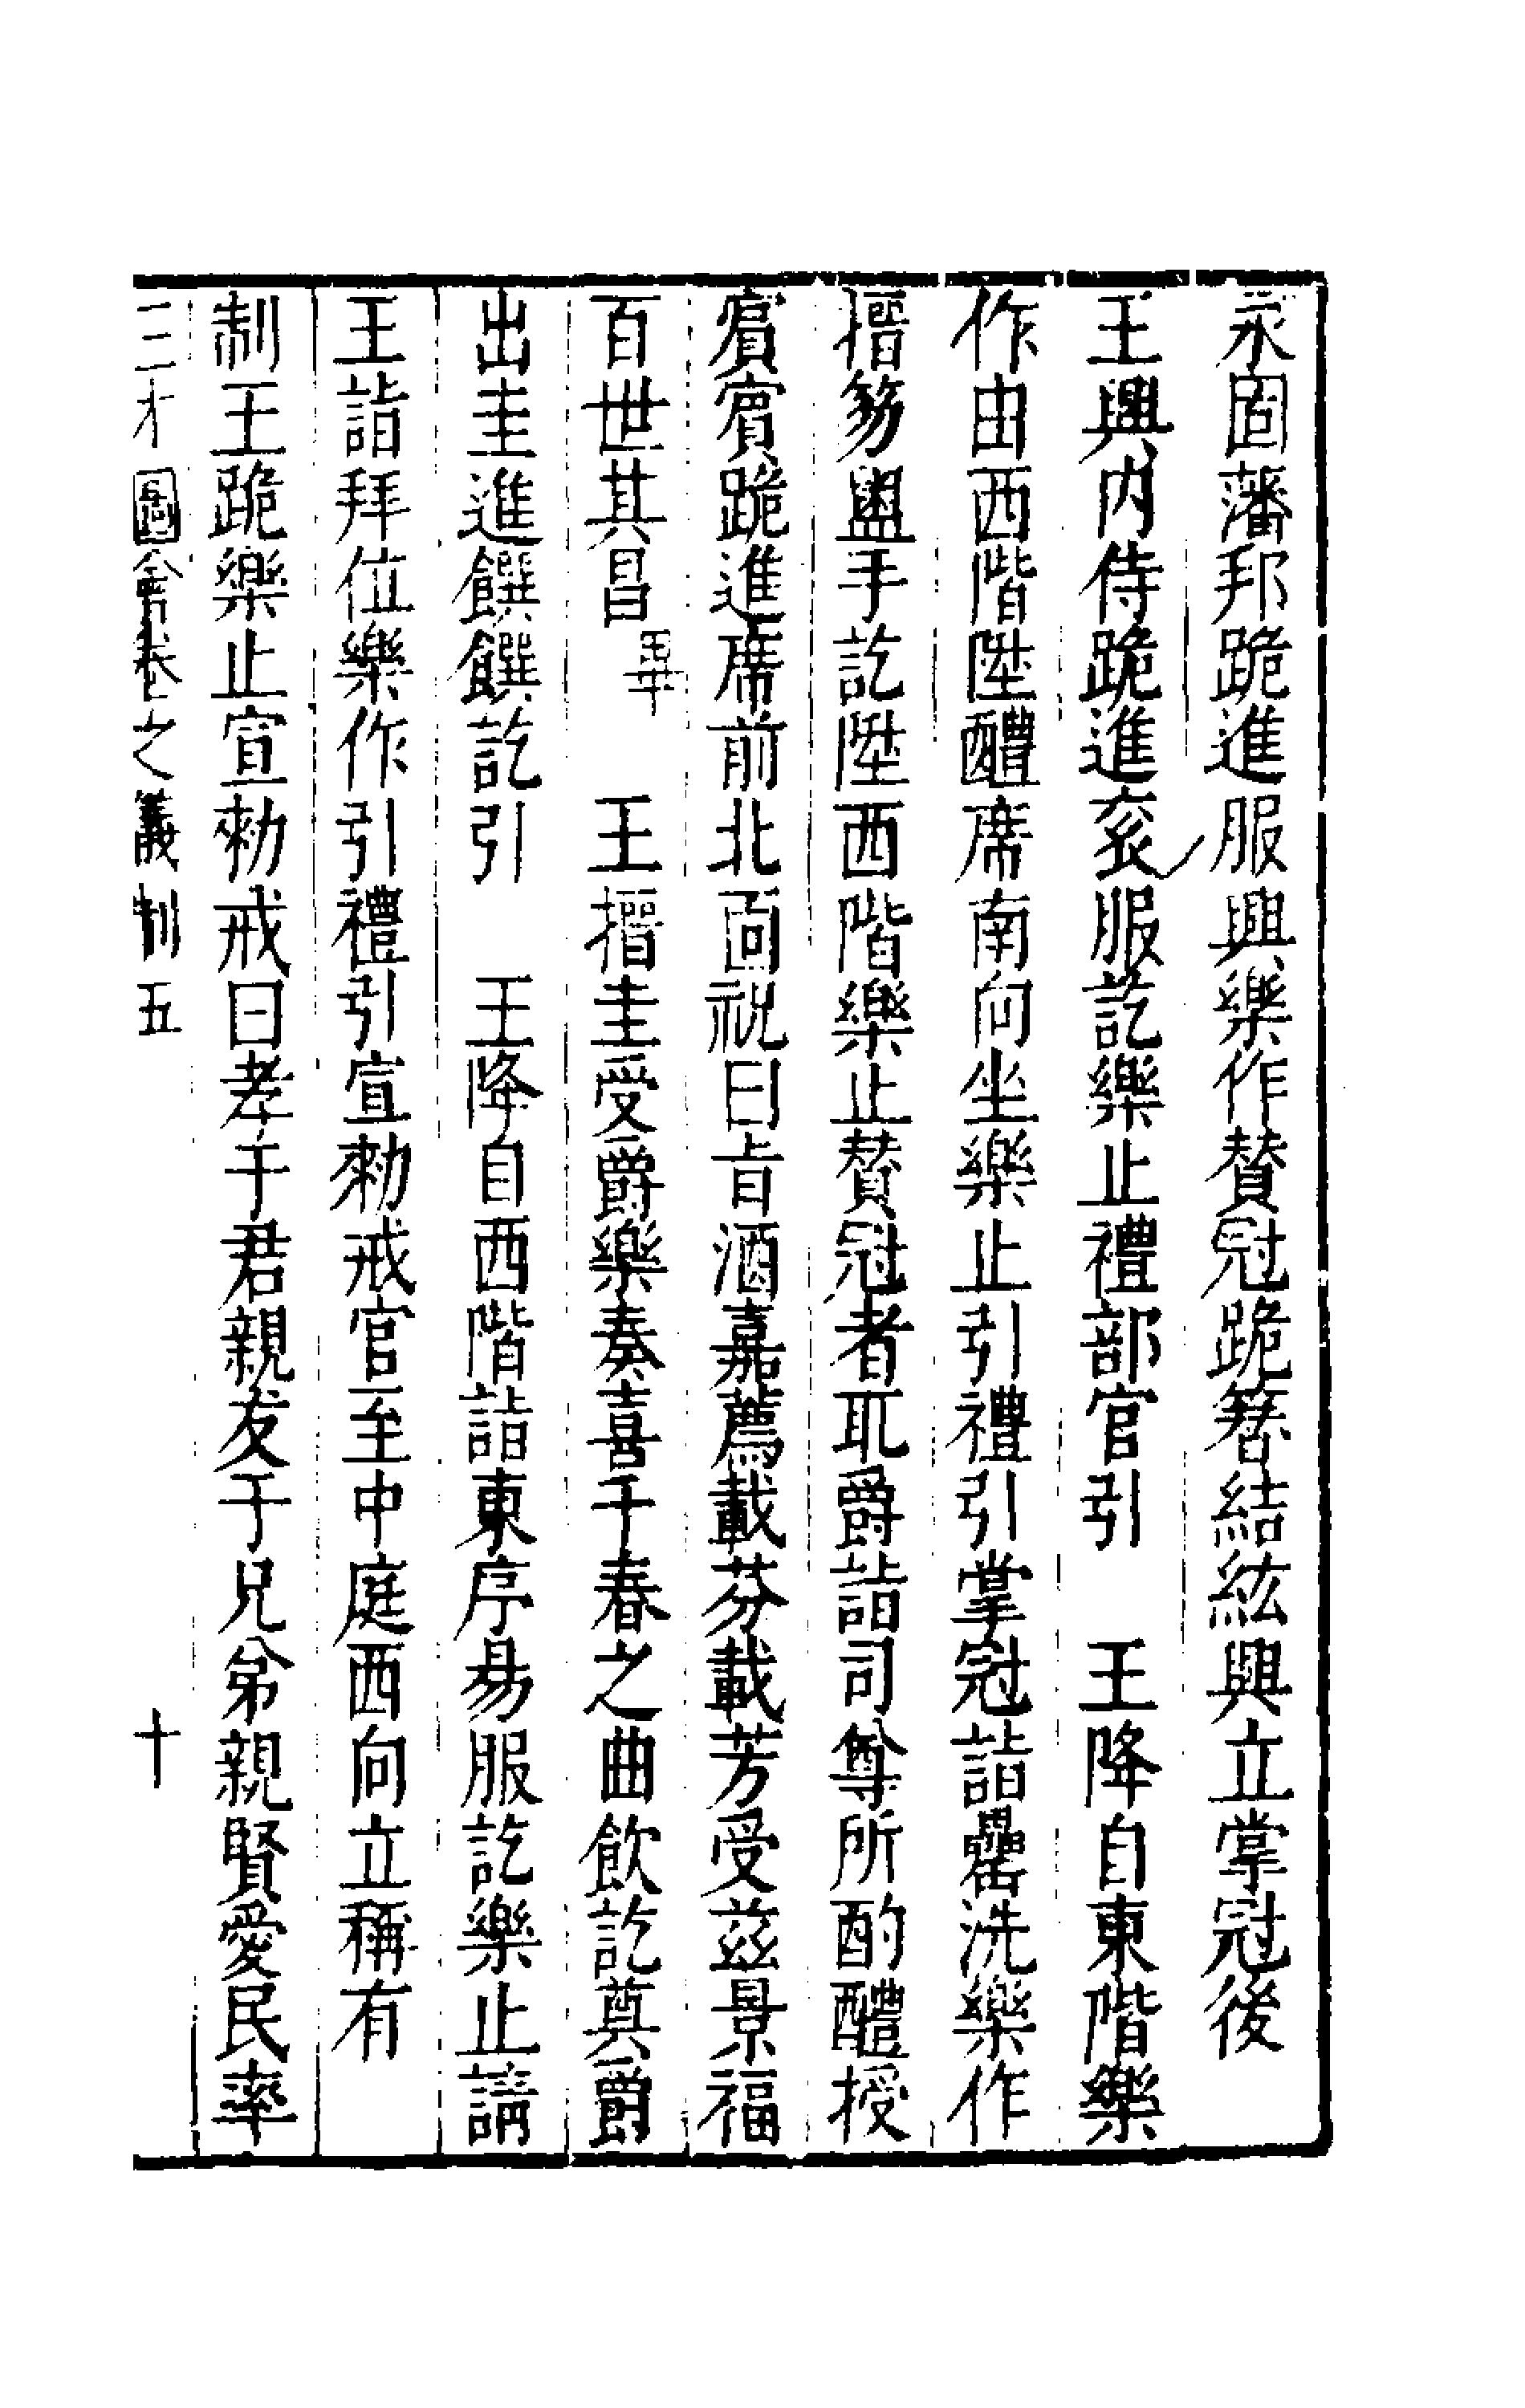 永固藩邦跪進服興樂作賛冠跪簪結紘興立掌冠後
王興內侍跪進衮服訖樂止禮部官引　王降自東階樂
作由西階陞醴席南向坐樂止引禮引掌冠詣罍洗樂作
搢笏盥手訖陞西階樂止賛冠者取爵詣司尊所酌醴授
賓賓跪進席前北面祝曰旨酒嘉薦載芬載芳受茲景福
百世其昌畢　王搢圭受爵樂奏喜千春之曲飲訖奠爵
出圭進饌饌訖引　王降自西階詣東序易服訖樂止請
王詣拜位樂作引禮引宣勑戒官至中庭西向立稱有
制王跪樂止宣勑戒曰孝于君親友于兄弟親賢愛民率
三才圖會卷之儀制五　十